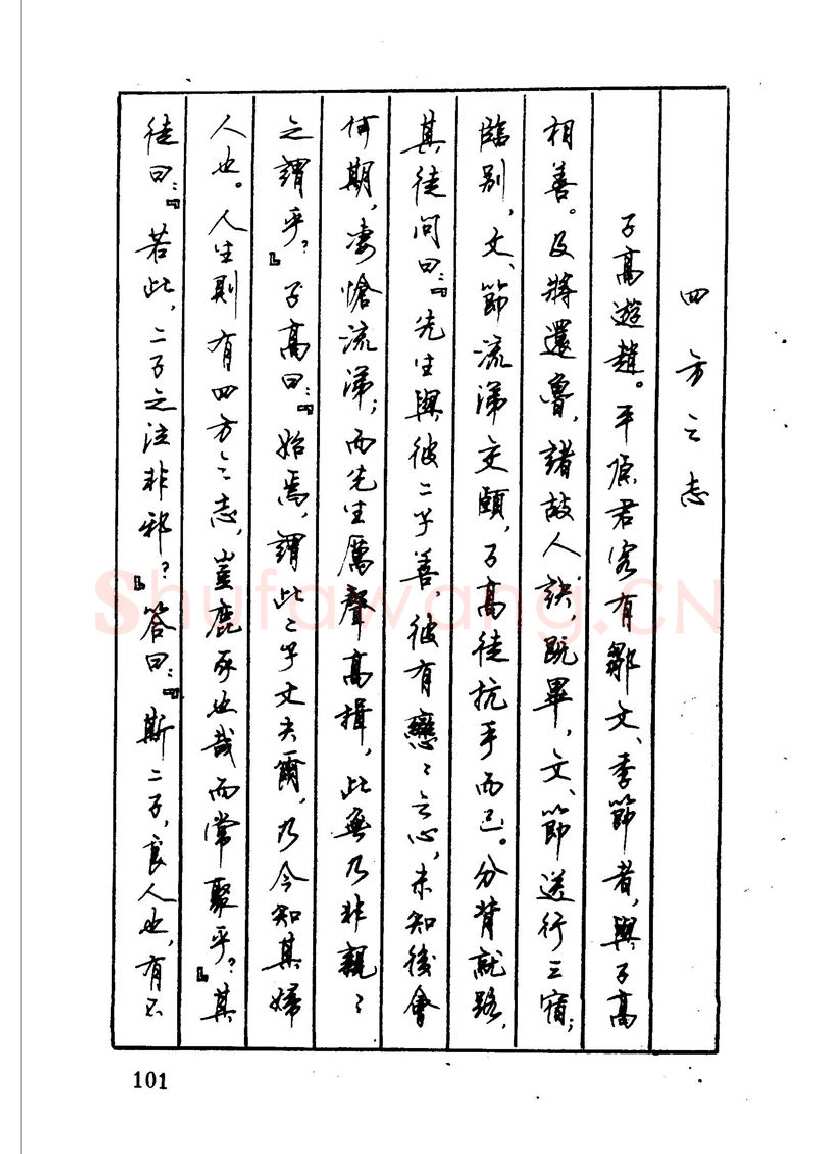 四方之志
子高遊趙。平原君客有鄒文、季節者，與子高
相善。及將還魯，諸故人訣，既畢，文、節送行三宿；
臨別，文、節流涕交頤，子高徒抗手而已。分背就路，
其徒問曰：『先生與彼二子善，彼有戀〻之心，未知後會
何期，凄愴流涕；而先生厲聲高揖，此無乃非親〻
之謂乎？』子高曰：『始焉，謂此二子丈夫爾，乃今知其婦
人也。人生則有四方之志，豈鹿豕也哉而常聚乎？』其
徒曰：『若此，二子之泣非邪？』答曰：『斯二子，良人也，有不
101
Shufawang.CN